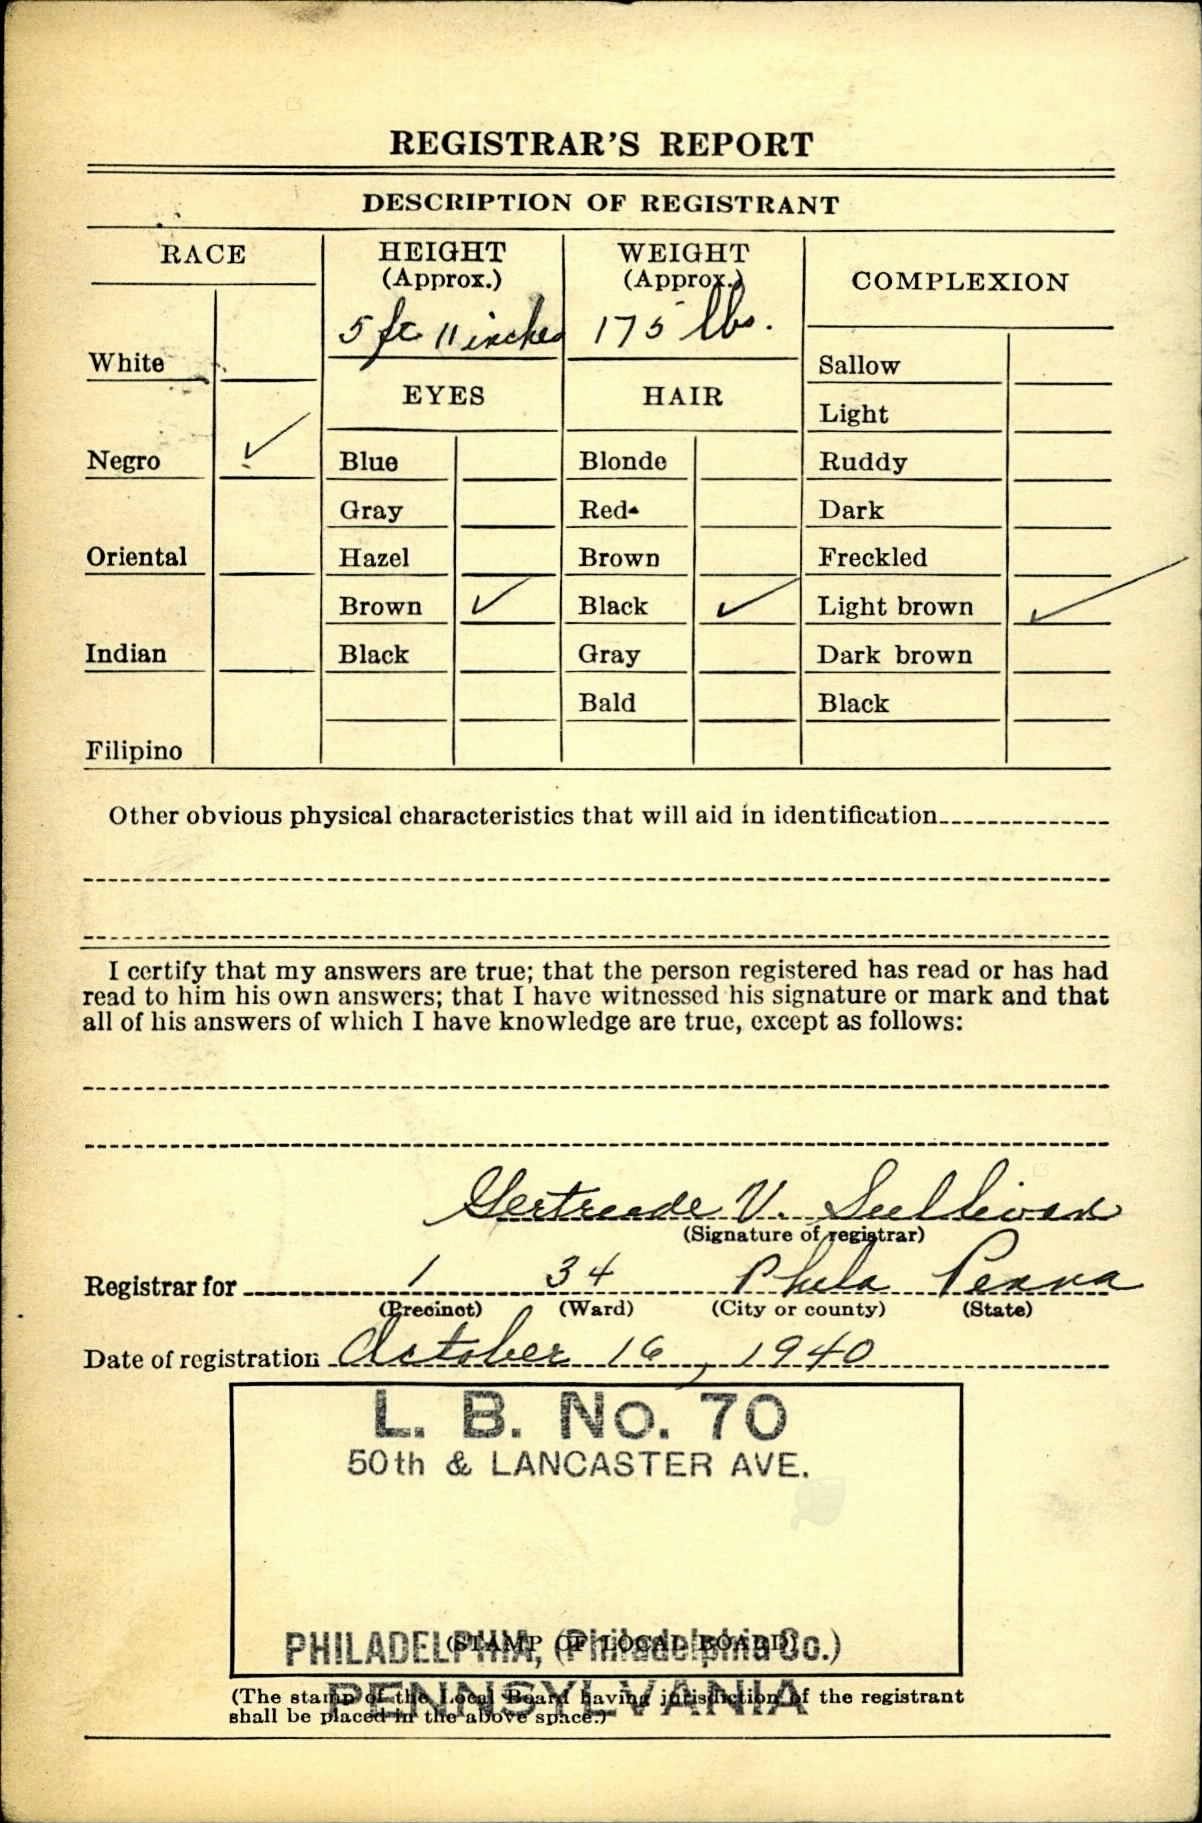 REGISTRAR'S REPORT
DESCRIPTION OF REGISTRANT
RACE
HEIGHT
(Approx.)
WEIGHT
(Approx.)
COMPLEXION
5 ft 11 inches
175 lbs.
White
EYES
HAIR
Sallow
Light
Negro ✓
Blue
Blonde
Ruddy
Gray
Red
Dark
Oriental
Hazel
Brown
Freckled
Brown ✓
Black ✓
Light brown ✓
Indian
Black
Gray
Dark brown
Bald
Black
Filipino
Other obvious physical characteristics that will aid in identification
I certify that my answers are true; that the person registered has read or has had
read to him his own answers; that I have witnessed his signature or mark and that
all of his answers of which I have knowledge are true, except as follows:
Gertrude V. Sullivan
(Signature of registrar)
Registrar for 1 34 Phila Penna
(Precinct) (Ward) (City or county) (State)
Date of registration October 16, 1940
L. B. No. 70
50th & LANCASTER AVE.
PHILADELPHIA, (Philadelphia Co.)
(STAMP OF LOCAL BOARD)
PENNSYLVANIA
(The stamp of the Local Board having jurisdiction of the registrant
shall be placed in the above space.)